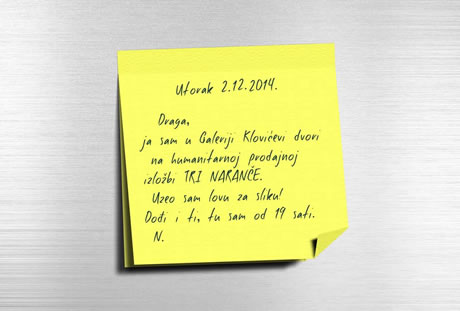 Utorak 2.12.2014.
Draga,
ja sam u Galeriji Klovićevi dvori
na humanitarnoj prodajnoj
izložbi TRI NARANČE.
Uzeo sam lovu za sliku!
Dođi i ti, tu sam od 19 sati.
N.